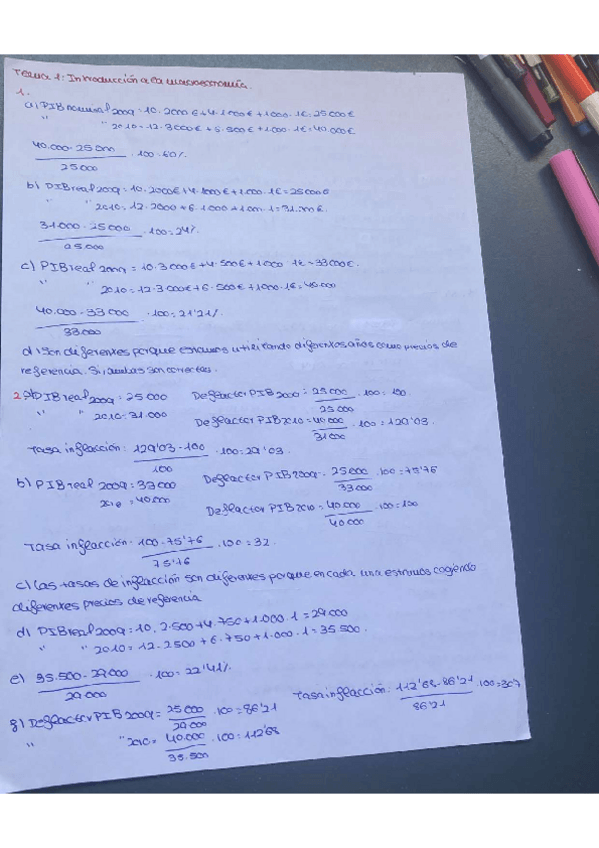 Tema 1: Introducción a la macroeconomía.
1.
a) PIB nominal 2009 = 10 · 2000 € + 4 · 1000 € + 1000 · 1 € = 25000 €
" " 2010 = 12 · 3000 € + 6 · 500 € + 1000 · 1 € = 40 000 €
40.000 - 25000 / 25000 · 100 = 60 %
b) PIB real 2009 = 10 · 2000 € + 4 · 1000 € + 1.000 · 1 € = 25000 €
" " 2010 = 12 · 2000 + 6 · 1000 + 1000 · 1 = 31.000 €
31000 - 25000 / 25000 · 100 = 24 %
c) PIB real 2009 = 10 · 3000 € + 4 · 500 € + 1000 · 1 € = 33000 €.
" " 2010 = 12 · 3000 € + 6 · 500 € + 1000 · 1 € = 40.000
40.000 - 33000 / 33000 · 100 = 21'21 %
d) Son diferentes porque estamos utilizando diferentes años como precios de
referencia. Si, ambas son correctas.
2. a) PIB real 2009 = 25 000 Deflactor PIB 2009 = 25 000 / 25 000 · 100 = 100
" " 2010 = 31.000 Deflactor PIB 2010 = 40 000 / 31 000 · 100 = 129'03.
Tasa inflacción: 129'03 - 100 / 100 · 100 = 29'03.
b) PIB real 2009 = 33 000 Deflactor PIB 2009 = 25 000 / 33 000 · 100 = 75'76
2010 = 40.000 Deflactor PIB 2010 = 40.000 / 40 000 · 100 = 100
Tasa inflacción = 100 - 75'76 / 75'76 · 100 = 32.
c) Las tasas de inflacción son diferentes porque en cada una estamos cogiendo
diferentes precios de referencia
d) PIB real 2009 = 10 · 2.500 + 4 · 750 + 1.000 · 1 = 29.000
" " 2010 = 12 · 2500 + 6 · 750 + 1.000 · 1 = 35 500.
e) 35.500 - 29000 / 29 000 · 100 = 22'41 %
g) Deflactor PIB 2009 = 25 000 / 29 000 · 100 = 86'21 Tasa inflacción: 112'68 - 86'21 / 86'21 · 100 = 30'7
" " 2010 = 40.000 / 35.500 · 100 = 112'68